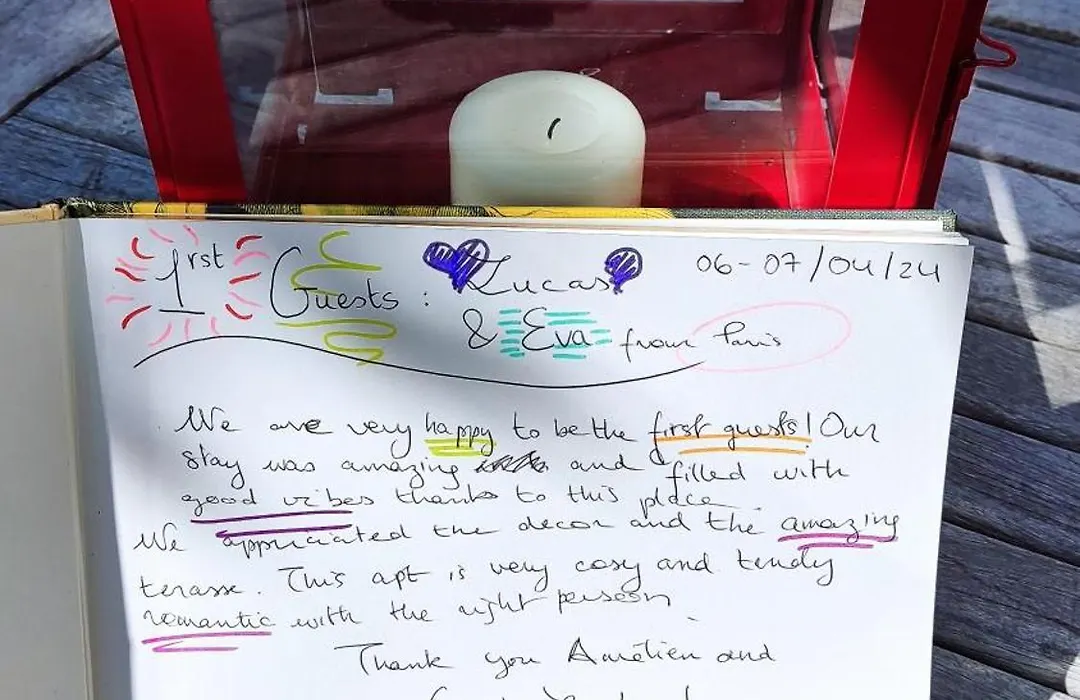 1rst Guests : Lucas 06-07/04/24
& Eva from Paris
We are very happy to be the first guests! Our
stay was amazing and filled with
good vibes thanks to this place.
We appriciated the decor and the amazing
terasse. This apt is very cosy and tendy
romantic with the right person
Thank you Aurélien and